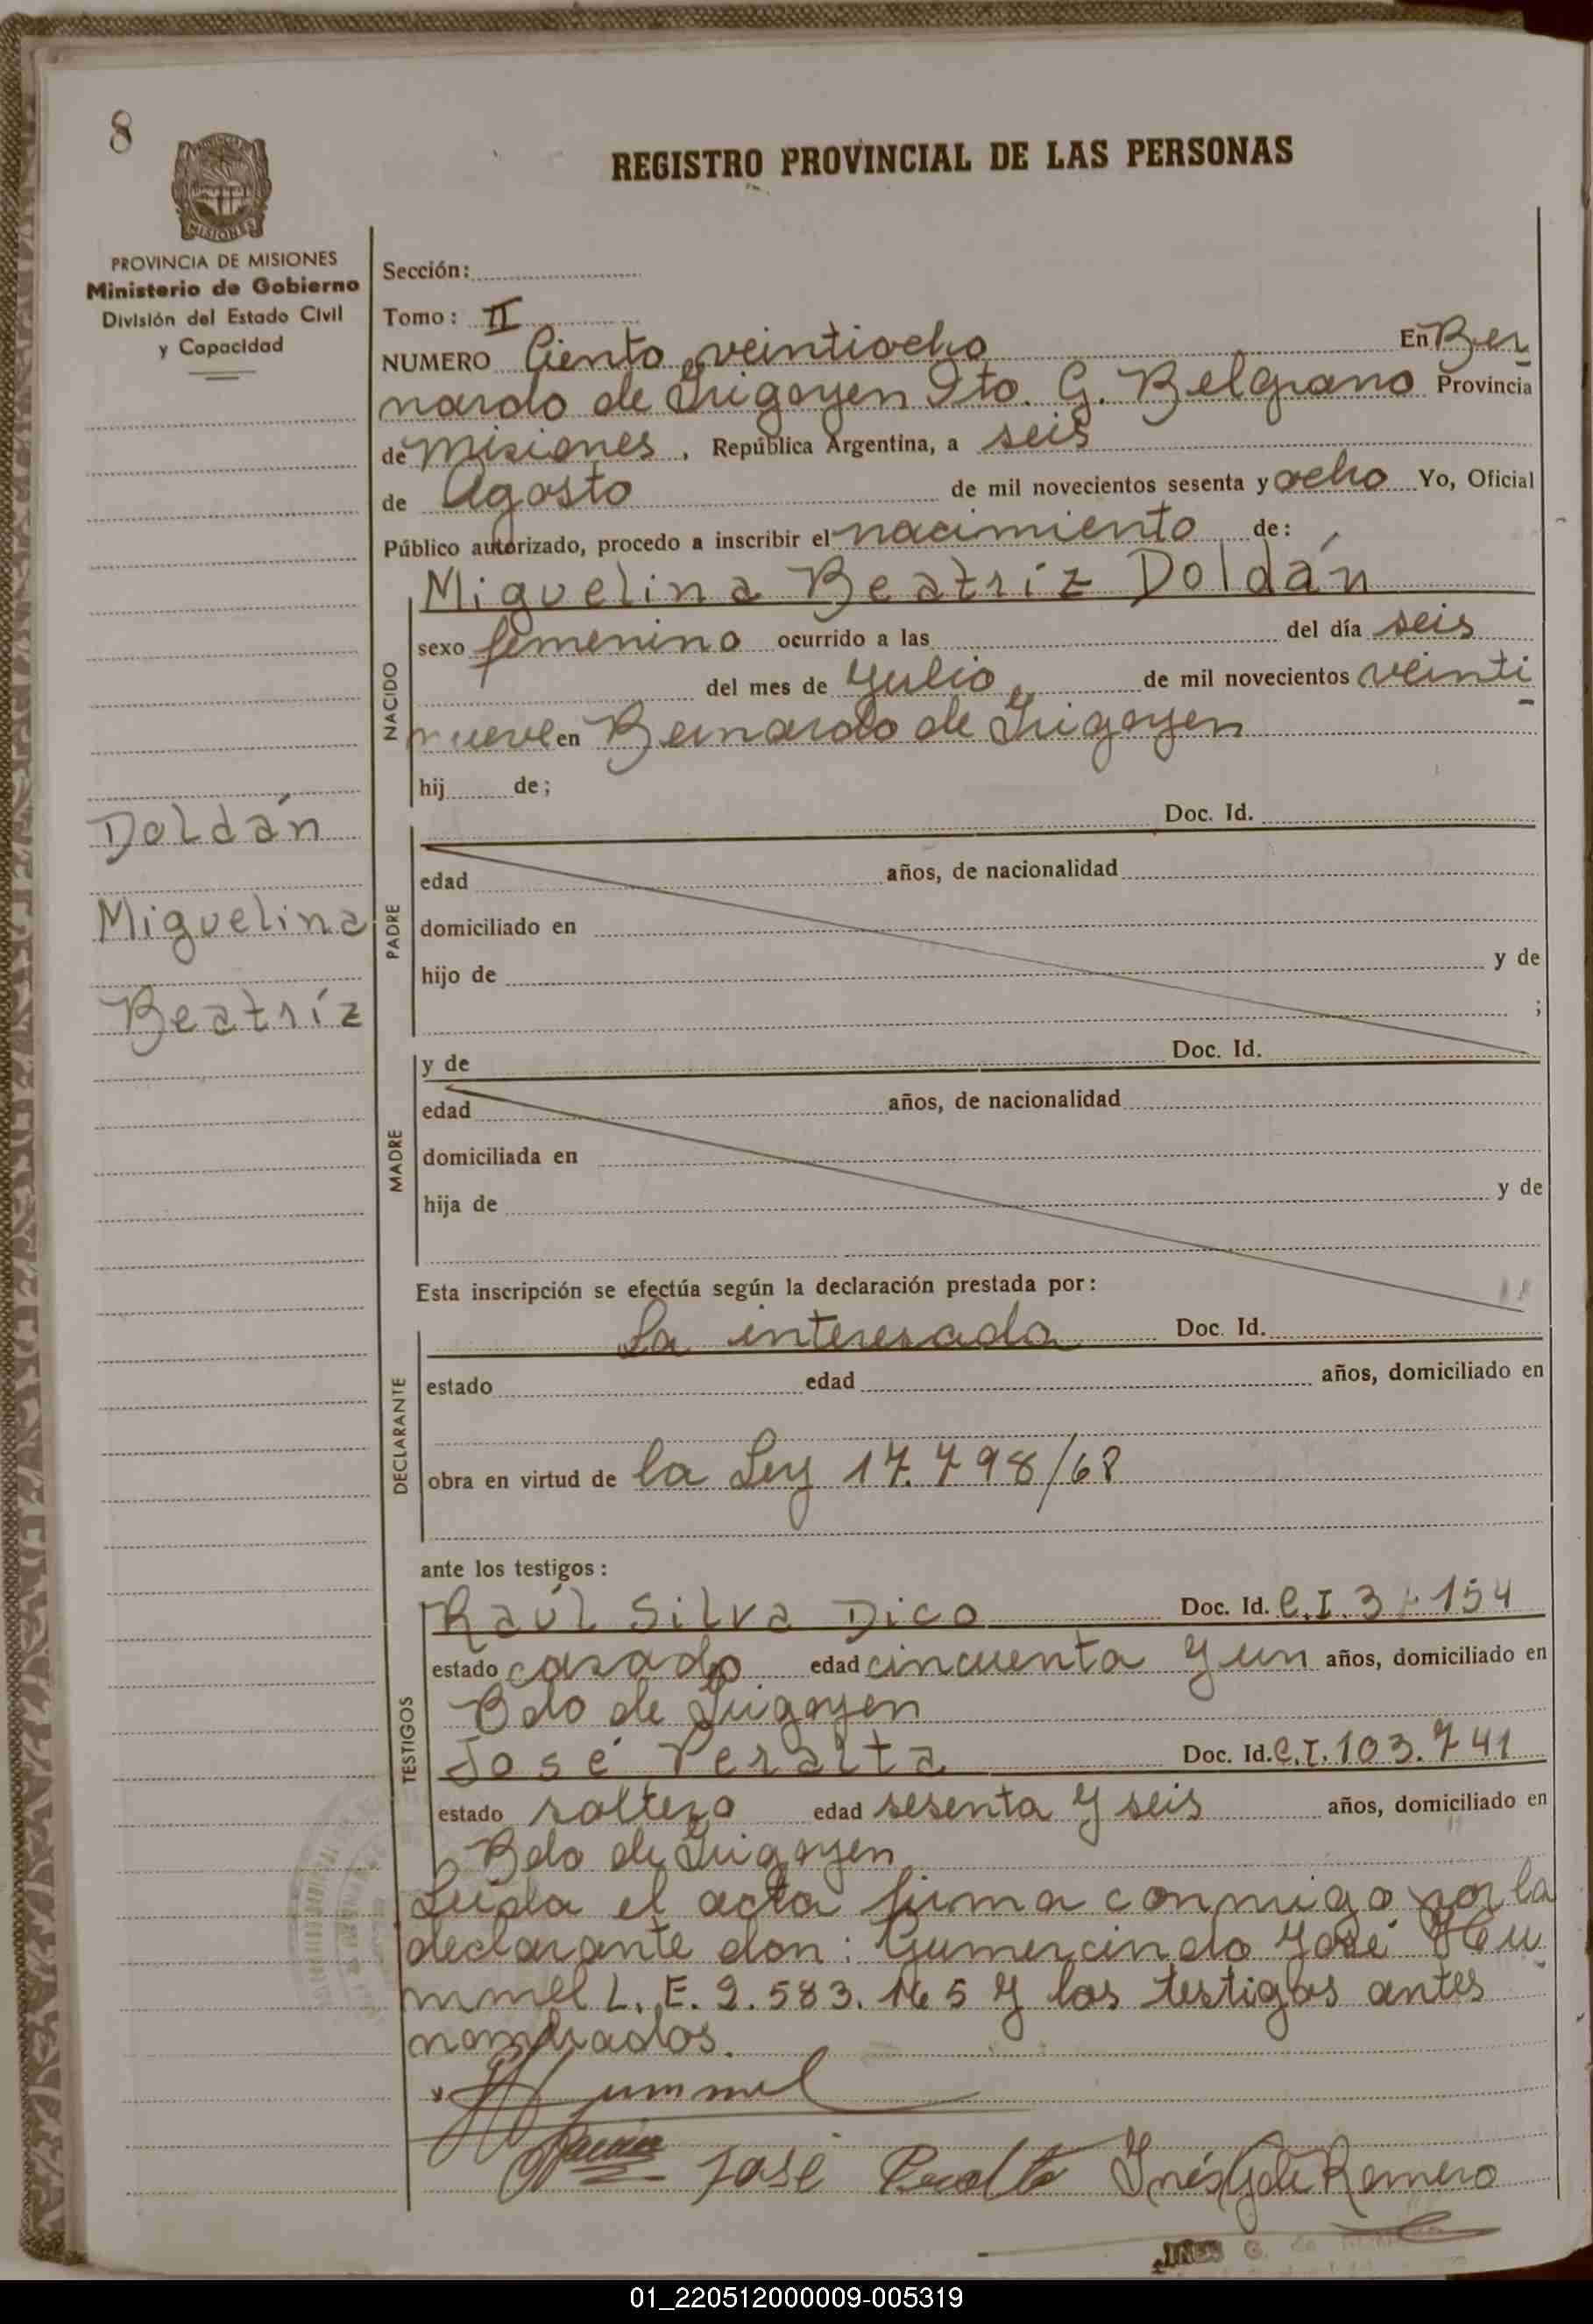 8
REGISTRO PROVINCIAL DE LAS PERSONAS
MISIONES
PROVINCIA DE MISIONES
Ministerio de Gobierno
División del Estado Civil
y Capacidad
Sección:
Tomo: II
NUMERO Ciento veintiocho En Ber
nardo de Irigoyen Dto. G. Belgrano Provincia
de Misiones, República Argentina, a seis
de Agosto de mil novecientos sesenta y ocho Yo, Oficial
Público autorizado, procedo a inscribir el nacimiento de:
Miguelina Beatríz Doldán
NACIDO
sexo femenino ocurrido a las del día seis
del mes de Julio de mil novecientos veinti
nueve en Bernardo de Irigoyen
hij de;
Doldán
Miguelina
Beatríz
PADRE
Doc. Id.
edad años, de nacionalidad
domiciliado en
hijo de y de
;
MADRE
y de Doc. Id.
edad años, de nacionalidad
domiciliada en
hija de y de
Esta inscripción se efectúa según la declaración prestada por:
DECLARANTE
La interesada Doc. Id.
estado edad años, domiciliado en
obra en virtud de la Ley 17.798/68
ante los testigos:
TESTIGOS
Raúl Silva Dico Doc. Id. C.I. 154
estado casado edad cincuenta y un años, domiciliado en
Bdo de Irigoyen
José Peralta Doc. Id. C.I. 103.741
estado soltero edad sesenta y seis años, domiciliado en
Bdo de Irigoyen
Leída el acta firma conmigo por la
declarante don: Gumercindo José Hu
mmel L. E. 2.583.165 y los testigos antes
nombrados.
Hummel
José Peralta Inés G de Romero
INES G. de
01_220512000009-005319